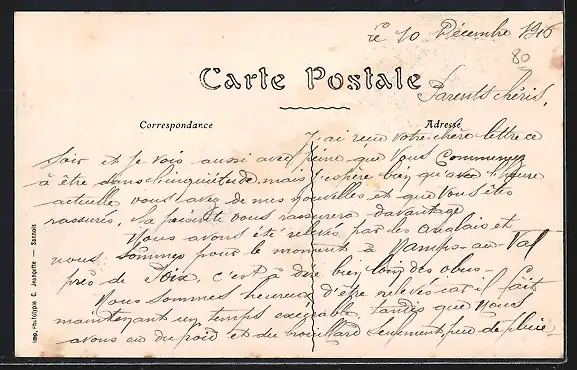 Le 10 Décembre 1916
80
Carte Postale
Parents chéris,
Correspondance
Adresse
J'ai reçu votre chère lettre ce
soir et je vois aussi avec peine que vous commencez
à être dans l'inquiétude, mais j'espère bien qu'avec l'heure
actuelle vous avez de mes nouvelles et que vous êtes
rassurés. La présente vous rassurera davantage
Nous avons été relevés par les anglais et
nous sommes pour le moment à Namps-au-Val
près de Poix, c'est à dire bien loin des obus -
Nous sommes heureux d'être relevés car il fait
maintenant un temps exécrable, tandis que nous
avons eu du froid et du brouillard seulement, peu de pluie -
Imp. Phototypie C. Jeangette — Sannois